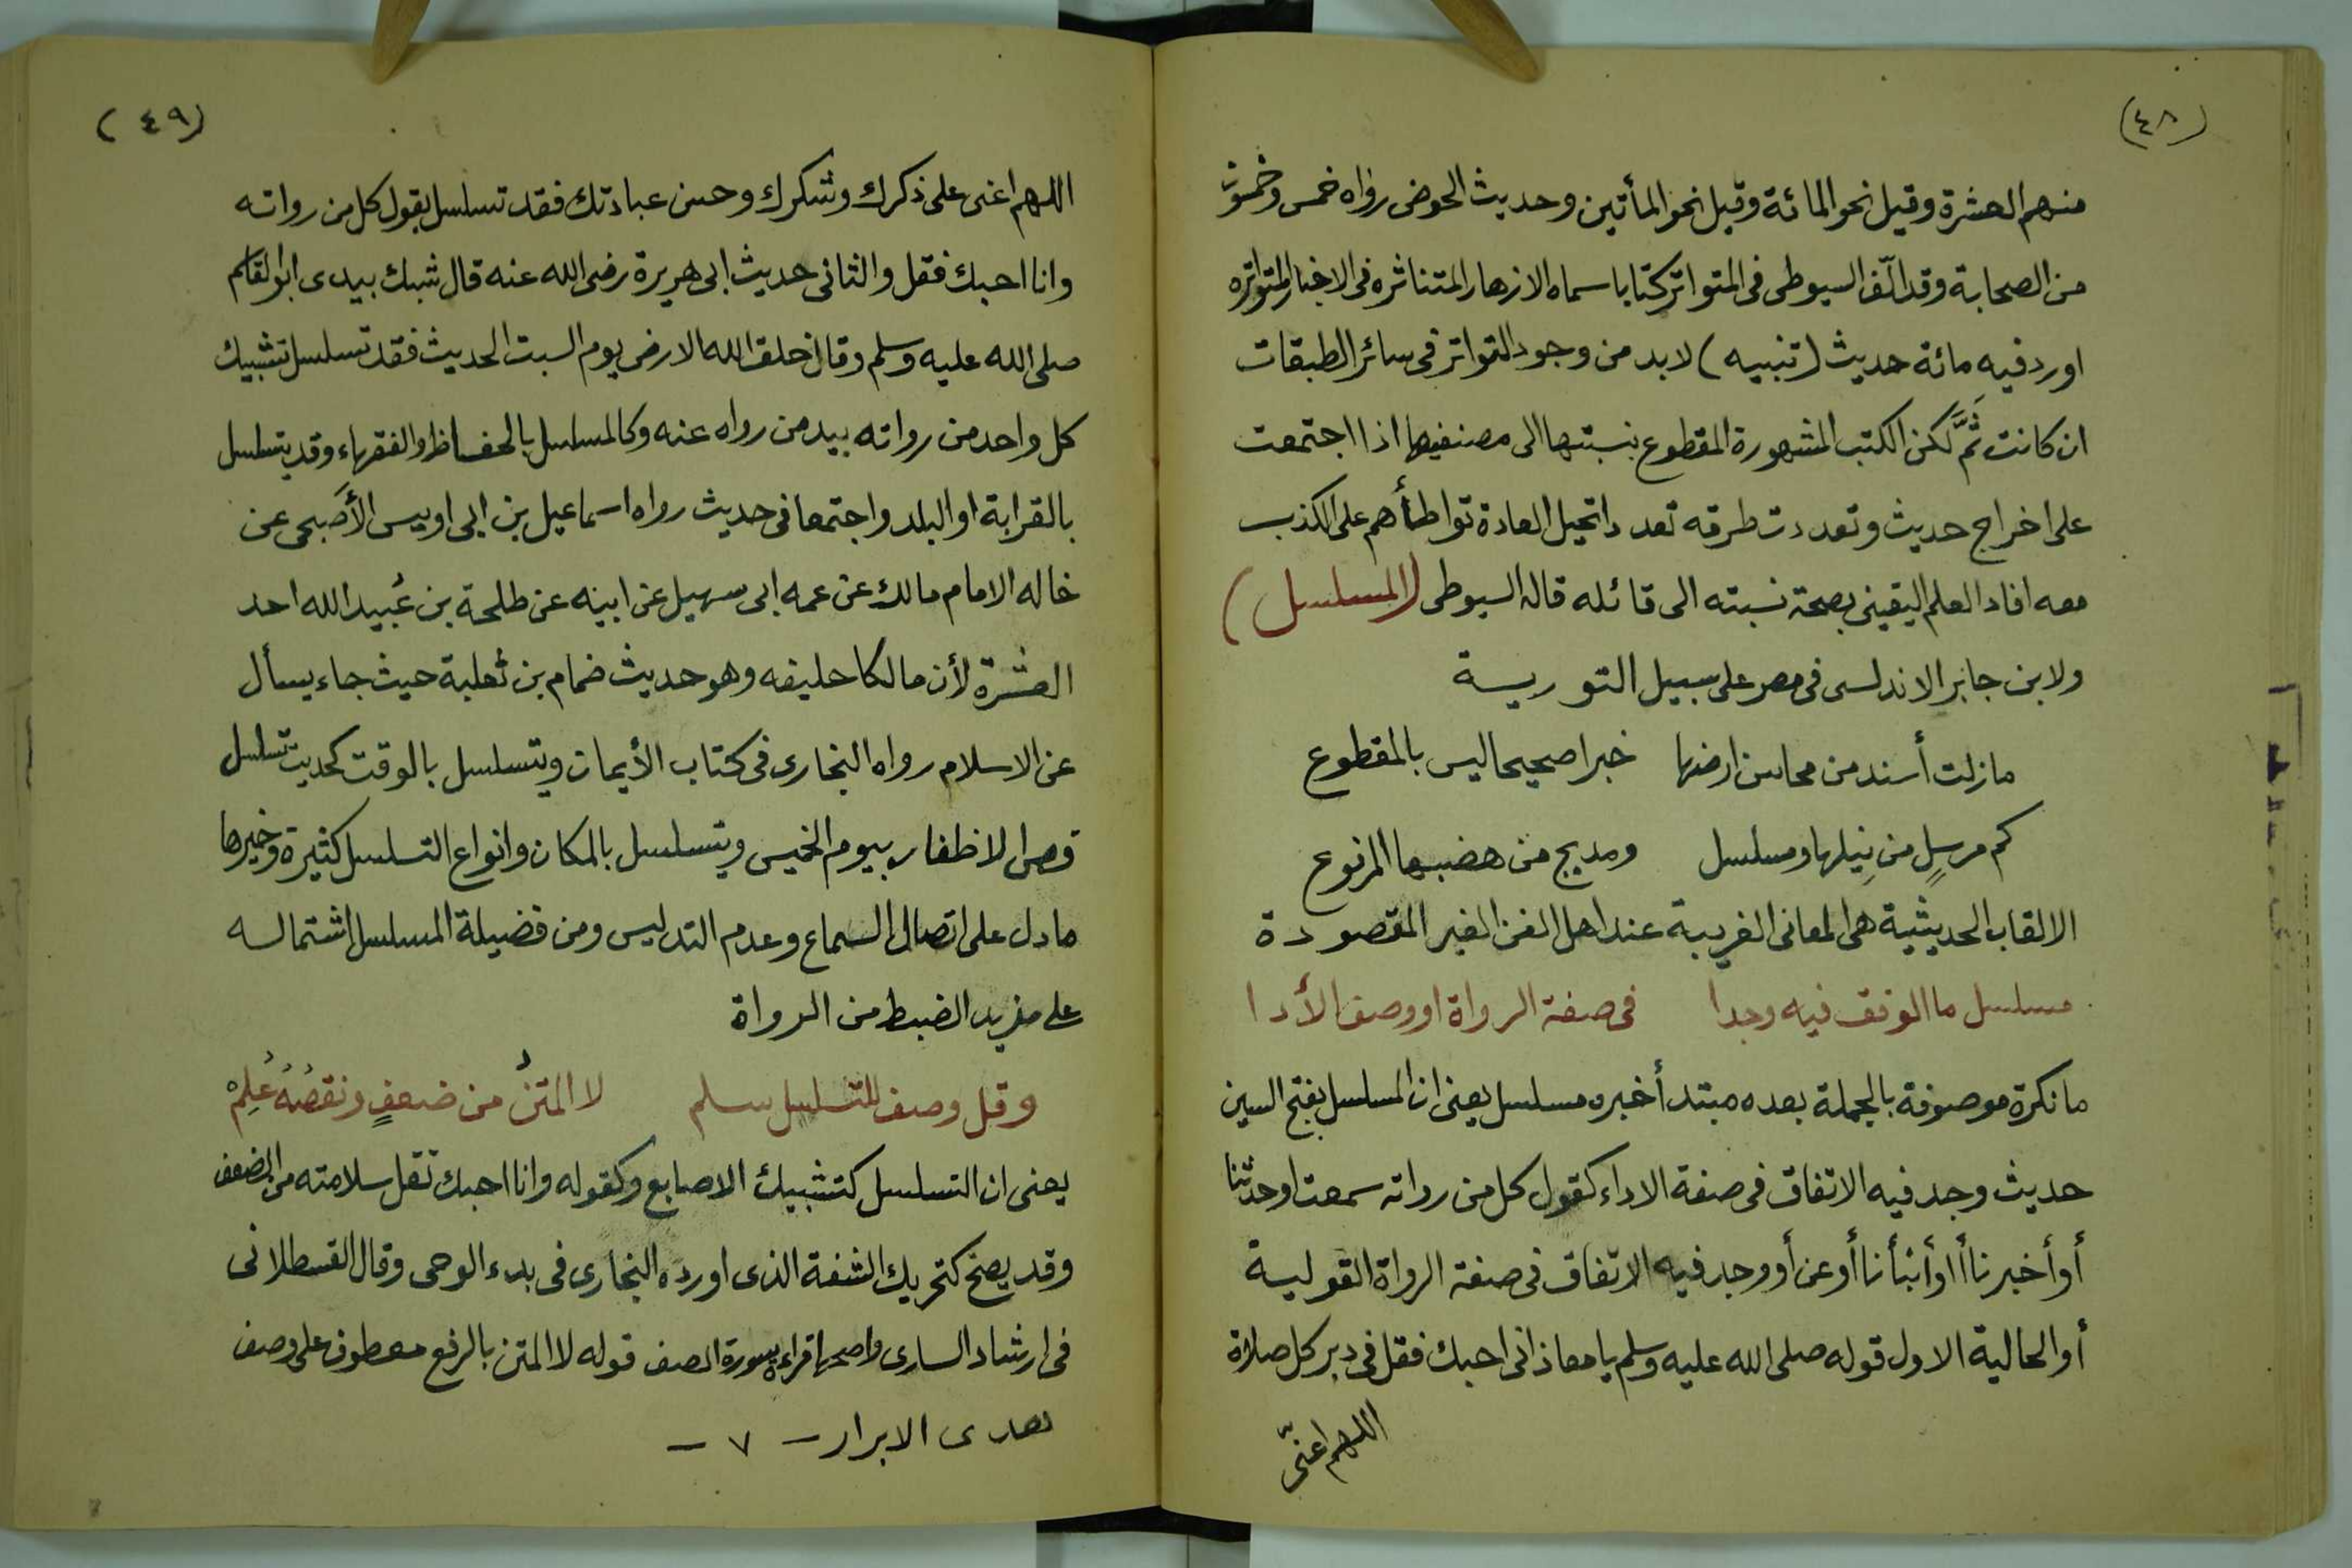 (٤٨)
منهم العشرة وقيل نحو المائة وقيل نحو المأتين وحديث الحوض رواه خمس وخمسون
من الصحابة وقد الّف السيوطى فى المتواتر كتابا سماه الازهار المتناثره فى الاخبار المتواتره
اورد فيه مائة حديث (تنبيه) لابد من وجود التواتر فى سائر الطبقات
ان كانت ثَمَّ لكن الكتب المشهورة المقطوع بنسبتها الى مصنفيها اذا اجتمعت
على اخراج حديث وتعددت طرقه تعددا تحيل العادة تواطأهم على الكذب
معه افاد العلم اليقينى بصحة نسبته الى قائله قاله السيوطى (المسلسل)
ولابن جابر الاندلسى فى مصر على سبيل التورية
مازلت أسند من محاسن ارضها خبرا صحيحا ليس بالمقطوع
كم مرسلٍ من نِيلها ومسلسل ومدبج من هضبها المرفوع
الالقاب الحديثية هى المعانى الغريبة عند اهل الفن الغير المقصودة
مسلسل ما الوفق فيه وجدا فى صفة الرواة او وصف الأدا
ما نكرة موصوفة بالجملة بعده مبتدأ خبره مسلسل يعنى ان المسلسل بفتح السين
حديث وجد فيه الاتفاق فى صفة الاداء كقول كل من رواته سمعت او حدثنا
أو أخبرنا أو أنبأنا أو عن أو وجد فيه الاتفاق فى صفة الرواة القولية
أو الحالية الاول قوله صلى الله عليه وسلم يا معاذ انى احبك فقل فى دبر كل صلاة
اللهم اعنّى
(٤٩)
اللهم اعنى على ذكرك وشكرك وحسن عبادتك فقد تسلسل بقول كل من رواته
وانا احبك فقل والثانى حديث ابى هريرة رضى الله عنه قال شبك بيدى ابو القاسم
صلى الله عليه وسلم وقال خلق الله الارض يوم السبت الحديث فقد تسلسل تشبيك
كل واحد من رواته بيد من رواه عنه وكالمسلسل بالحفاظ والفقهاء وقد يتسلسل
بالقرابة او البلد واجتمعا فى حديث رواه اسماعيل بن ابى اويس الأَصبحى عن
خاله الامام مالك عن عمه ابى سهيل عن ابيه عن طلحة بن عُبيد الله احد
العشرة لأن مالكا حليفه وهو حديث ضمام بن ثعلبة حيث جاء يسأل
عن الاسلام رواه البخارى فى كتاب الأيمان ويتسلسل بالوقت كحديث تسلسل
قص الاظفار بيوم الخميس ويتسلسل بالمكان وانواع التسلسل كثيرة وخيرها
ما دل على اتصال السماع وعدم التدليس ومن فضيلة المسلسل اشتماله
على مزيد الضبط من الرواة
وقل وصف للتسلسل سلم لا المتنُ من ضعفٍ ونقصُهُ عُلِمْ
يعنى ان التسلسل كتشبيك الاصابع وكقوله وانا احبك تقل سلامته من الضعف
وقد يصح كتحريك الشفة الذى اورده البخارى فى بدء الوحى وقال القسطلانى
فى ارشاد السارى واصحها قراءة سورة الصف قوله لا المتن بالرفع معطوف على وصف
هدى الابرار – ٧ –